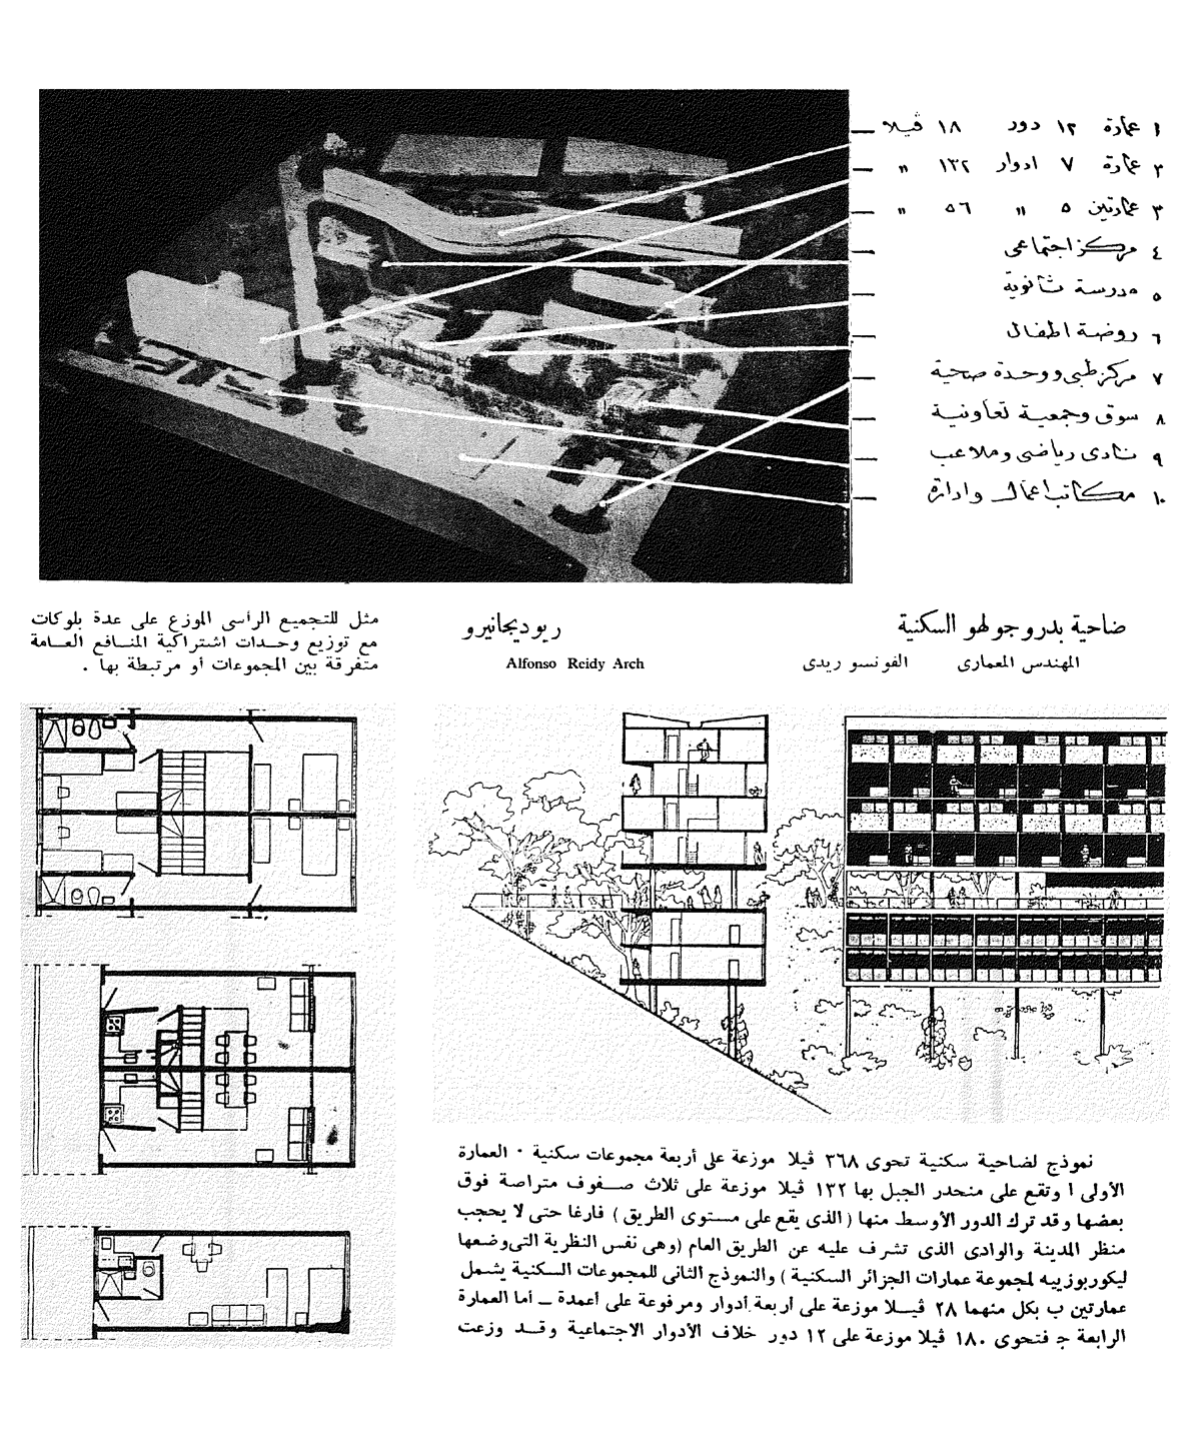 ١ عمارة ١٢ دور ١٨ ڤيلا
٢ عمارة ٧ ادوار ١٣٢ "
٣ عمارتين ٥ " ٥٦ "
٤ مركز اجتماعى
٥ مدرسة ثانوية
٦ روضة اطفال
٧ مركز طبى ووحدة صحية
٨ سوق وجمعية تعاونية
٩ نادى رياضى وملاعب
١٠ مكاتب اعمال وادارة
ضاحية بدروجولهو السكنية
ريوديجانيرو
المهندس المعمارى الفونسو ريدى
Alfonso Reidy Arch
مثل للتجميع الرأسى الموزع على عدة بلوكات
مع توزيع وحدات اشتراكية المنافع العامة
متفرقة بين المجموعات أو مرتبطة بها .
نموذج لضاحية سكنية تحوى ٣٦٨ ڤيلا موزعة على أربعة مجموعات سكنية · العمارة
الأولى ا وتقع على منحدر الجبل بها ١٣٢ ڤيلا موزعة على ثلاث صفوف متراصة فوق
بعضها وقد ترك الدور الأوسط منها ( الذى يقع على مستوى الطريق ) فارغا حتى لا يحجب
منظر المدينة والوادى الذى تشرف عليه عن الطريق العام (وهى نفس النظرية التى وضعها
ليكوربوزييه لمجموعة عمارات الجزائر السكنية ) والنموذج الثانى للمجموعات السكنية يشمل
عمارتين ب بكل منهما ٢٨ ڤيلا موزعة على أربعة أدوار ومرفوعة على أعمدة ــ أما العمارة
الرابعة ج فتحوى ١٨٠ ڤيلا موزعة على ١٢ دور خلاف الأدوار الاجتماعية وقد وزعت